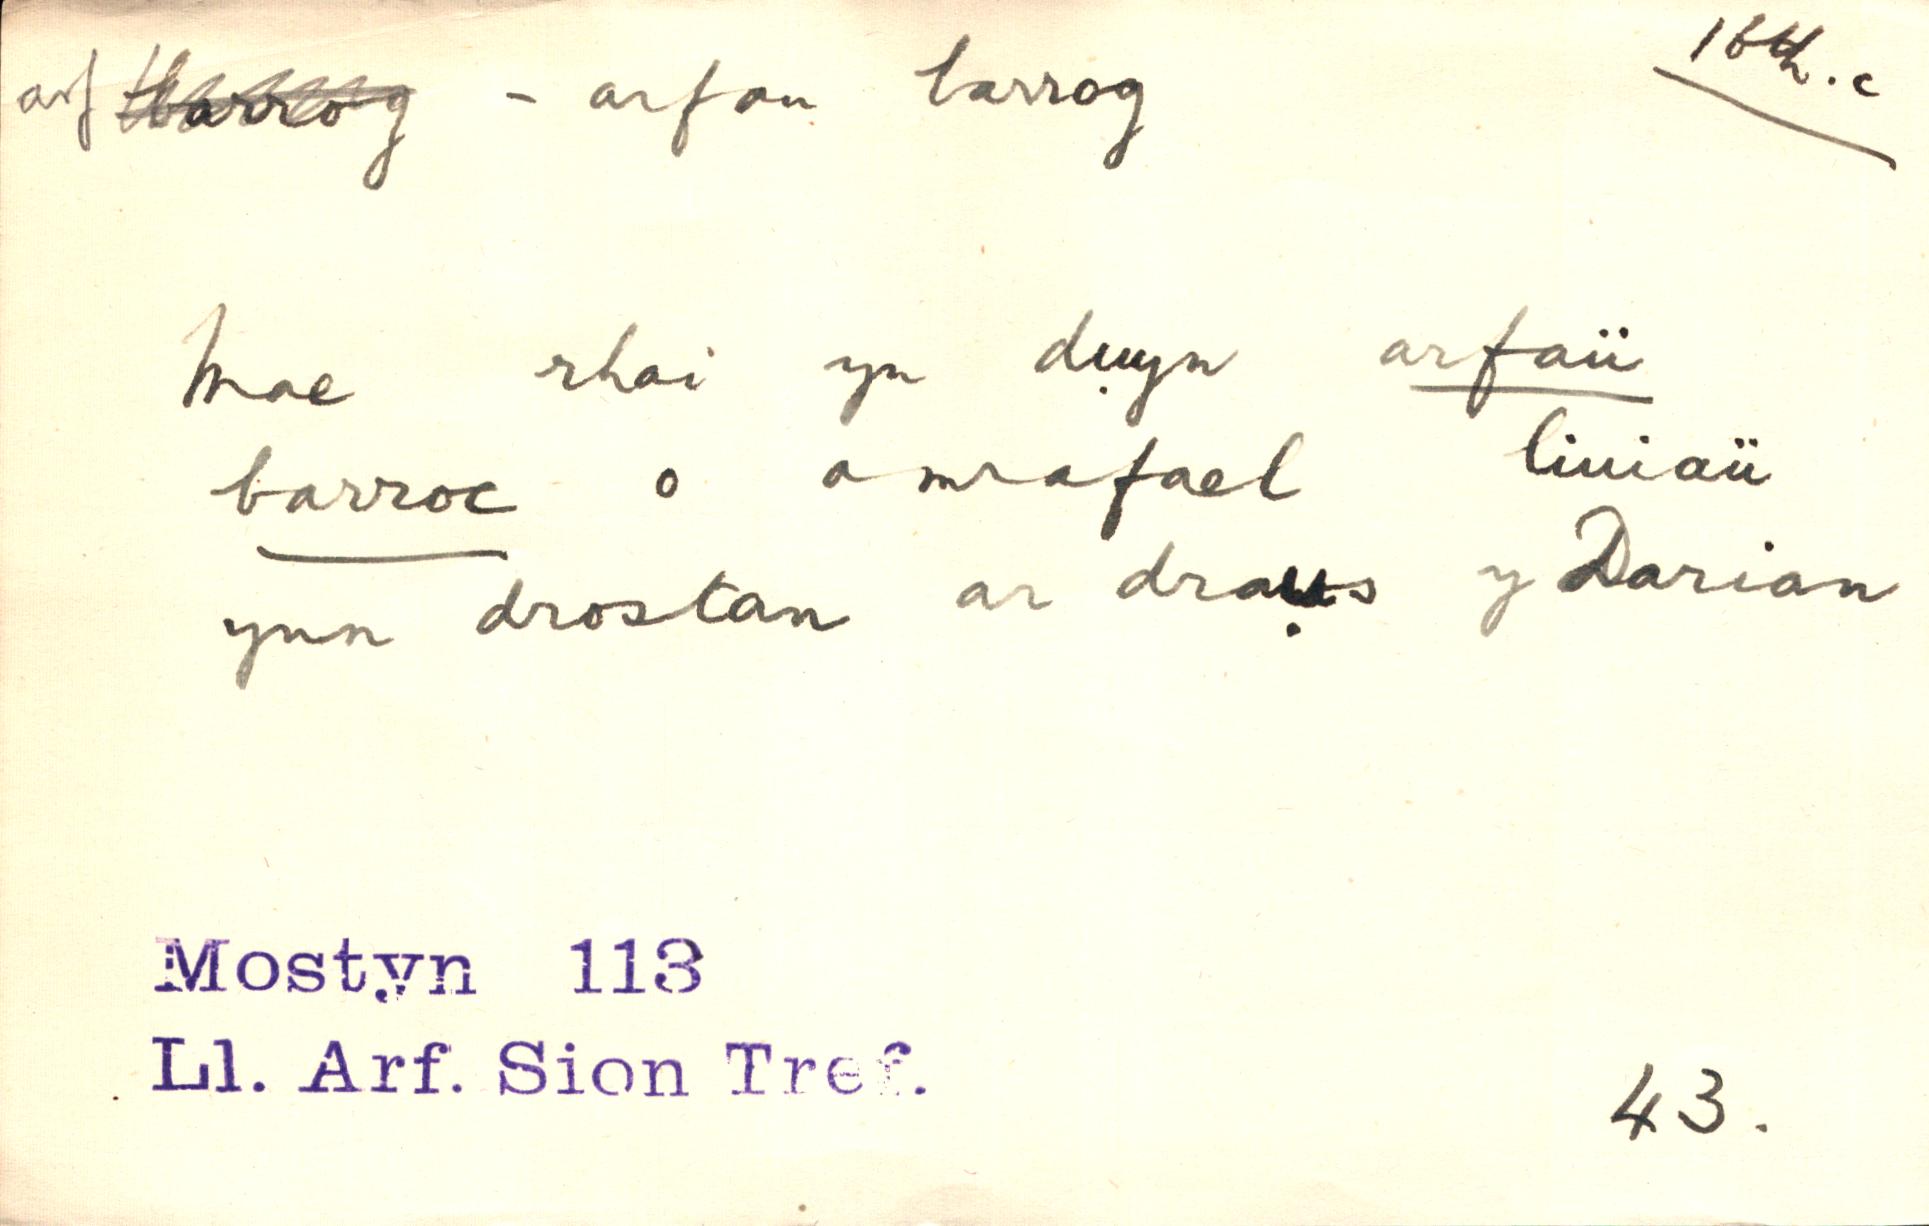 arf barrog - arfau barrog 16th.c
Mae rhai yn dụyn arfaü
barroc o amrafael liuiaü
ynn drostan ar draụs y Darian
Mostyn 113
Ll. Arf. Sion Tref.
43.